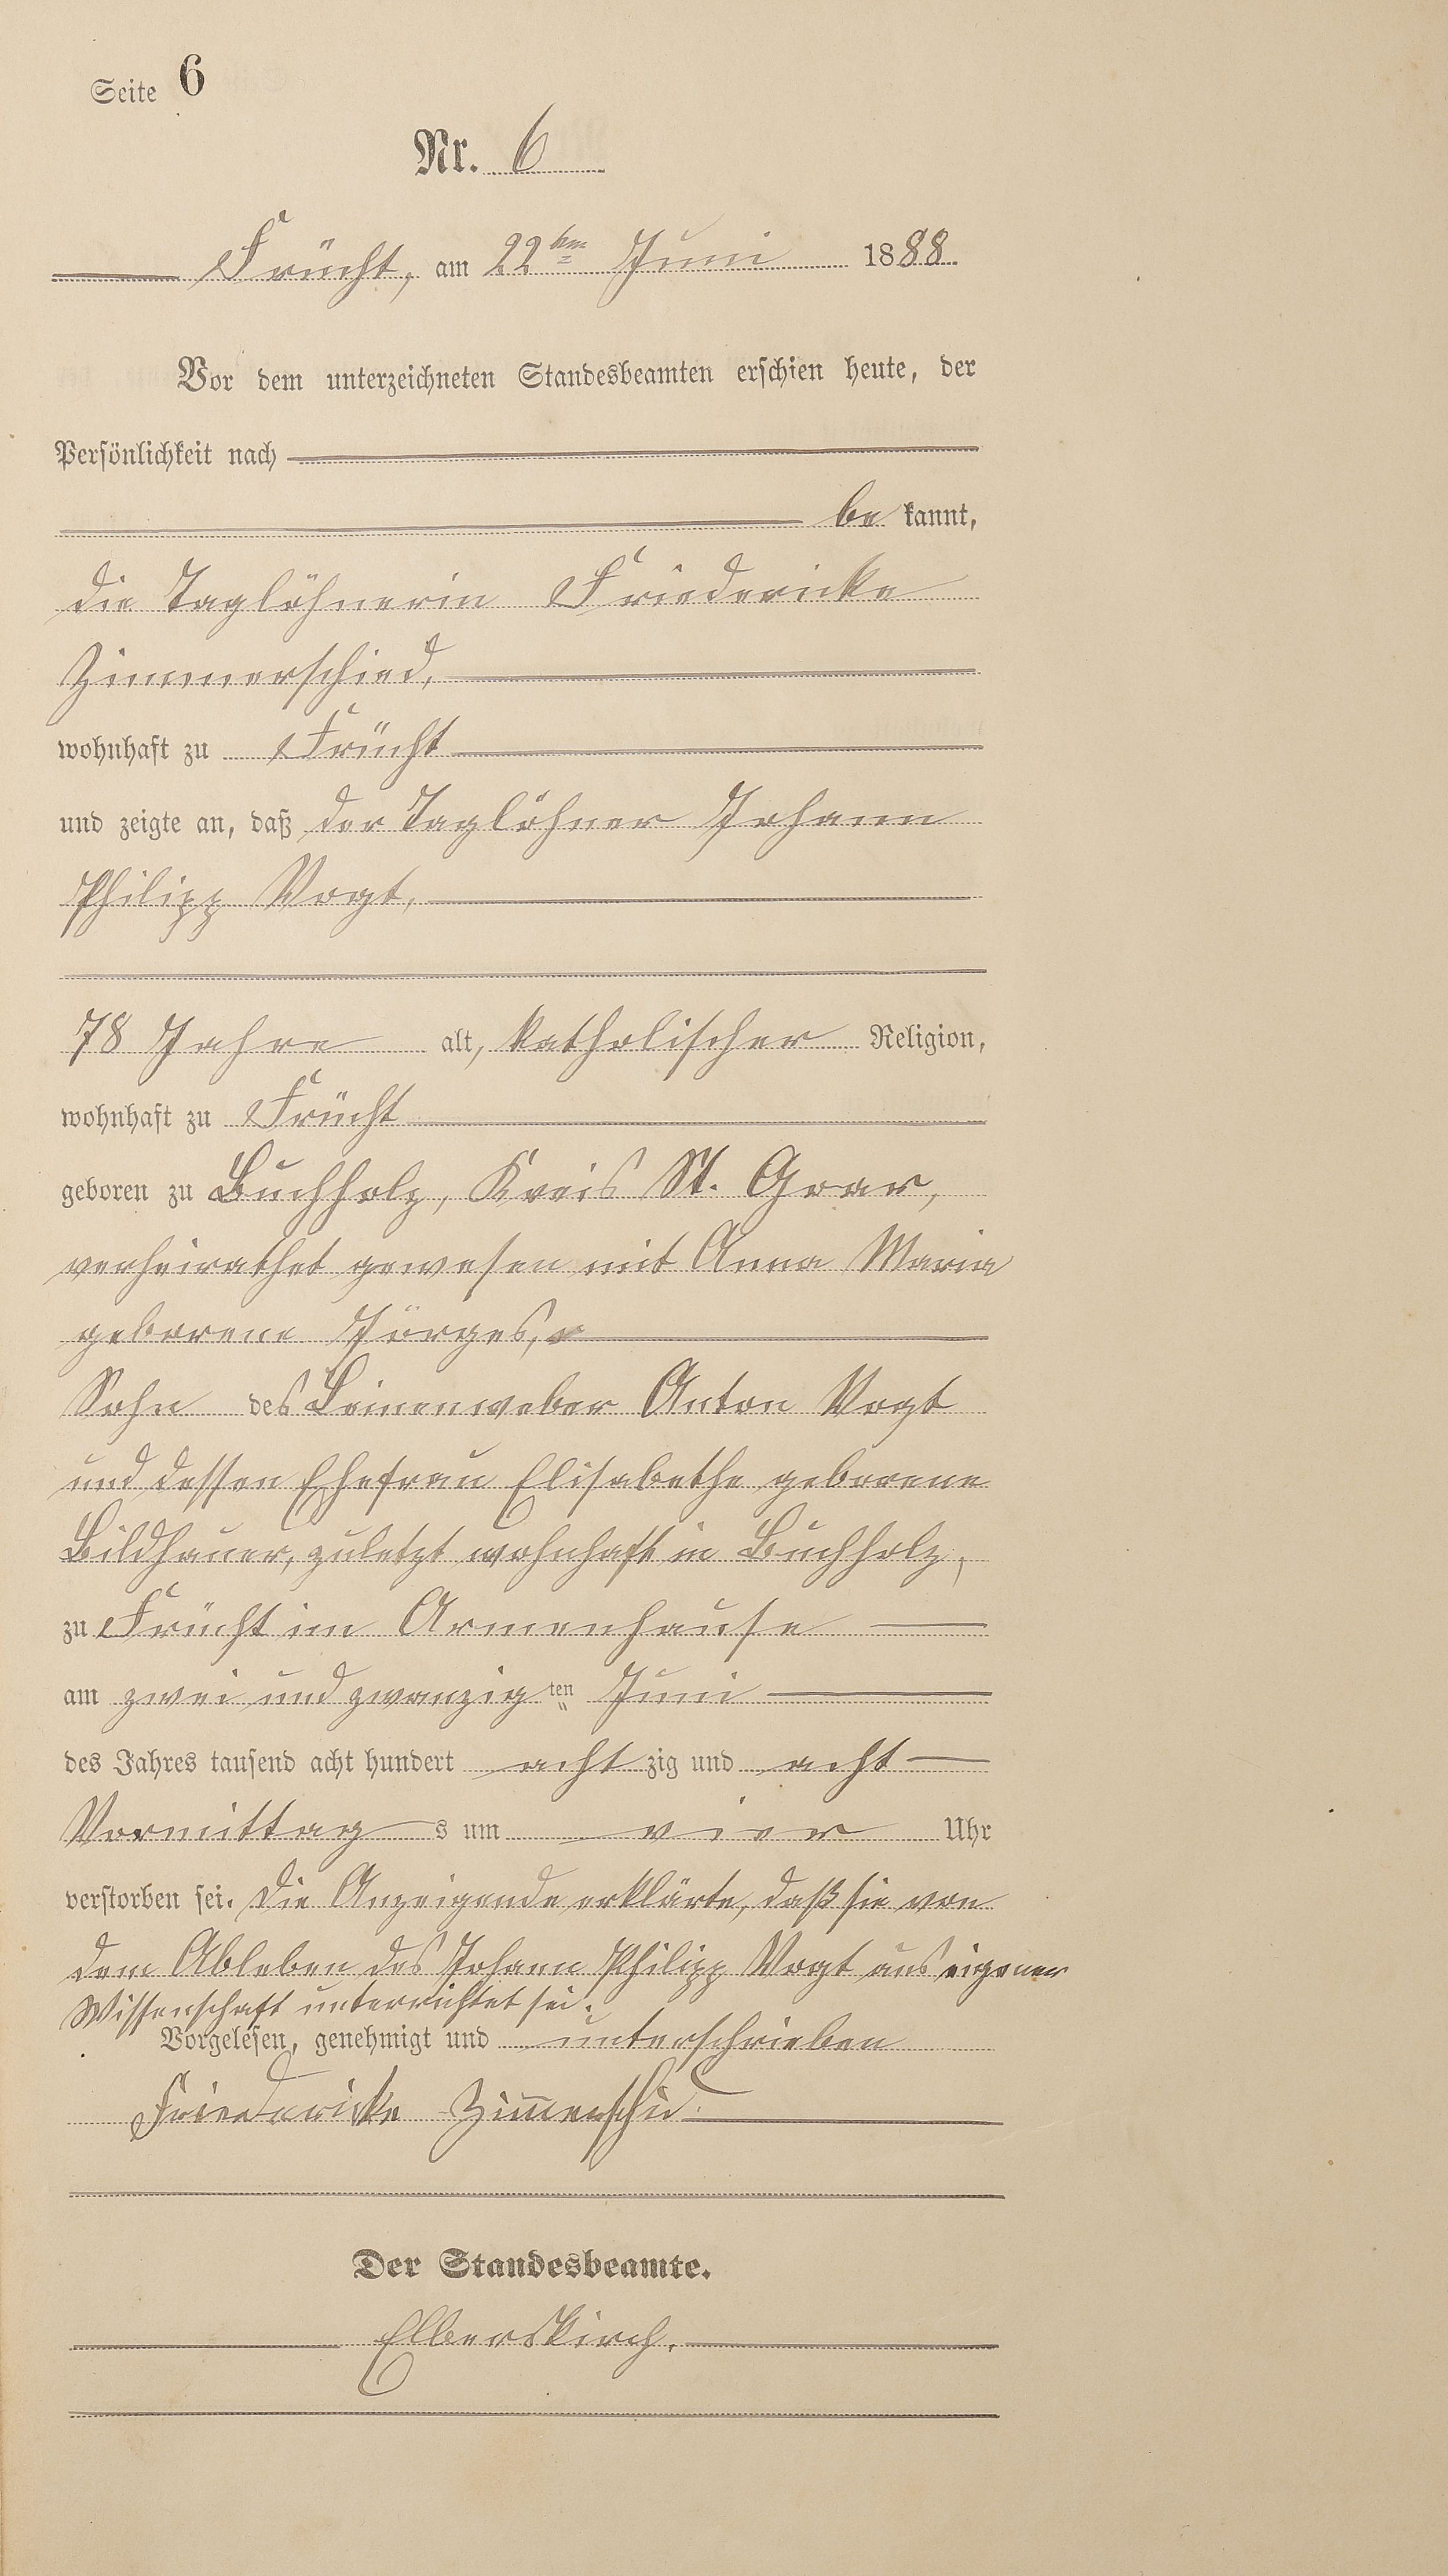 Seite 6
Nr. 6
Frücht, am 22ten Juni 1888.
Vor dem unterzeichneten Standesbeamten erschien heute, der
Persönlichkeit nach
be kannt,
die Taglöhnerin Friedericke
Zimmerschied,
wohnhaft zu Frücht
und zeigte an, daß der Taglöhner Johann
Philipp Vogt,
78 Jahre alt, katholischer Religion,
wohnhaft zu Frücht
geboren zu Buchholz, Kreis St. Goar,
verheirathet gewesen mit Anna Maria
geborene Jörges,
Sohn des Leinenweber Anton Vogt
und dessen Ehefrau Elisabethe geborene
Bildhauer, zuletzt wohnhaft in Buchholz,
zu Frücht im Armenhause
am zwei und zwanzig ten Juni
des Jahres tausend acht hundert acht zig und acht
Vormittag s um vier Uhr
verstorben sei. Die Anzeigende erklärte, daß sie von
dem Ableben des Johann Philipp Vogt aus eigener
Wissenschaft unterrichtet sei.
Vorgelesen, genehmigt und unterschrieben
Friedericke Zimmerschid.
Der Standesbeamte.
Elberskirch.